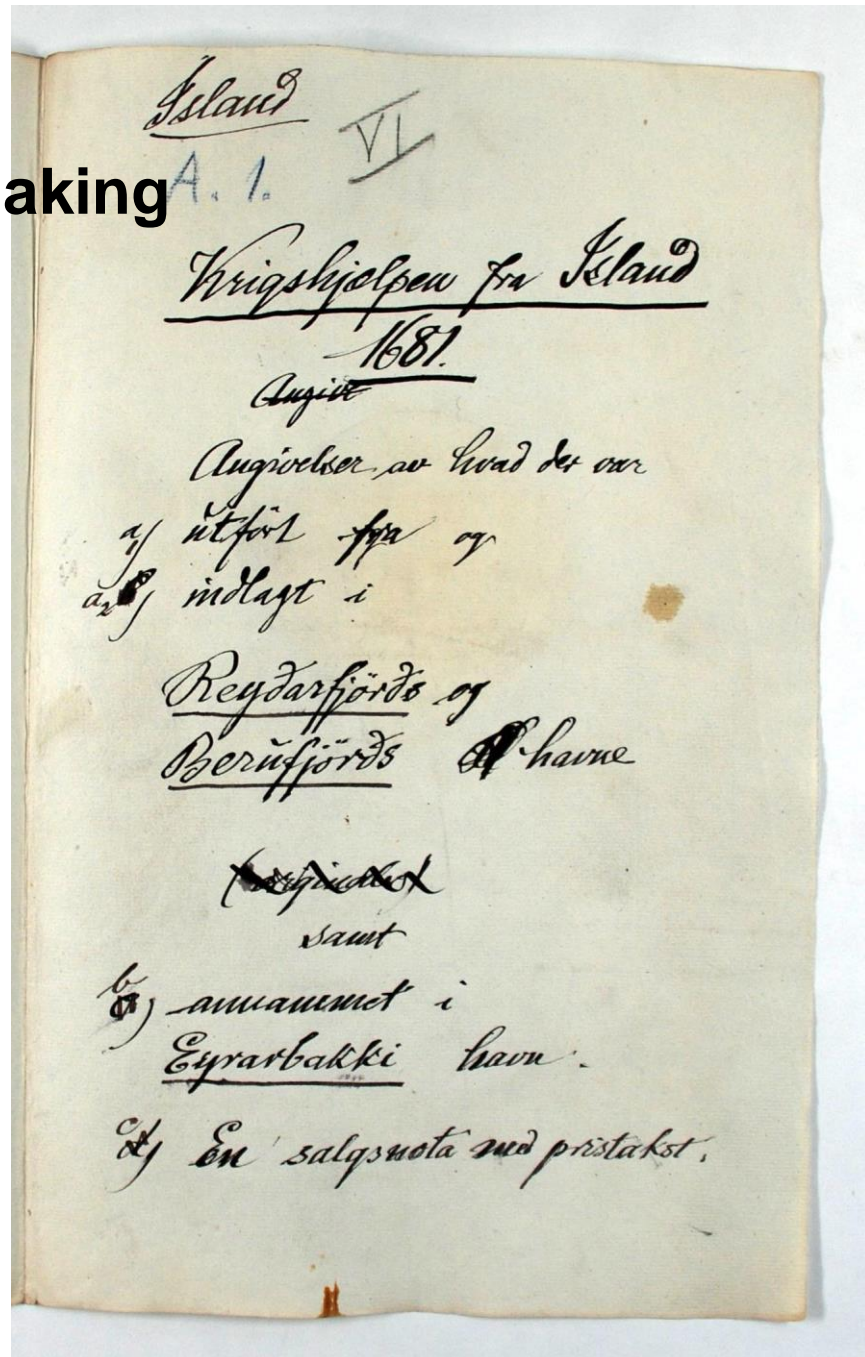 Ísland
VI
aking
A. 1.
Krigshjælpen fra Ísland
1681.
Angive
Angivelser av hvad der var
a1) útfört fra og
a2) indlagt i
Reyðarfjörðs og
Berufjörðs havne
(originaler)
samt
b) annammet i
Eyrarbakki havn.
c) En salgsnota med pristakst.